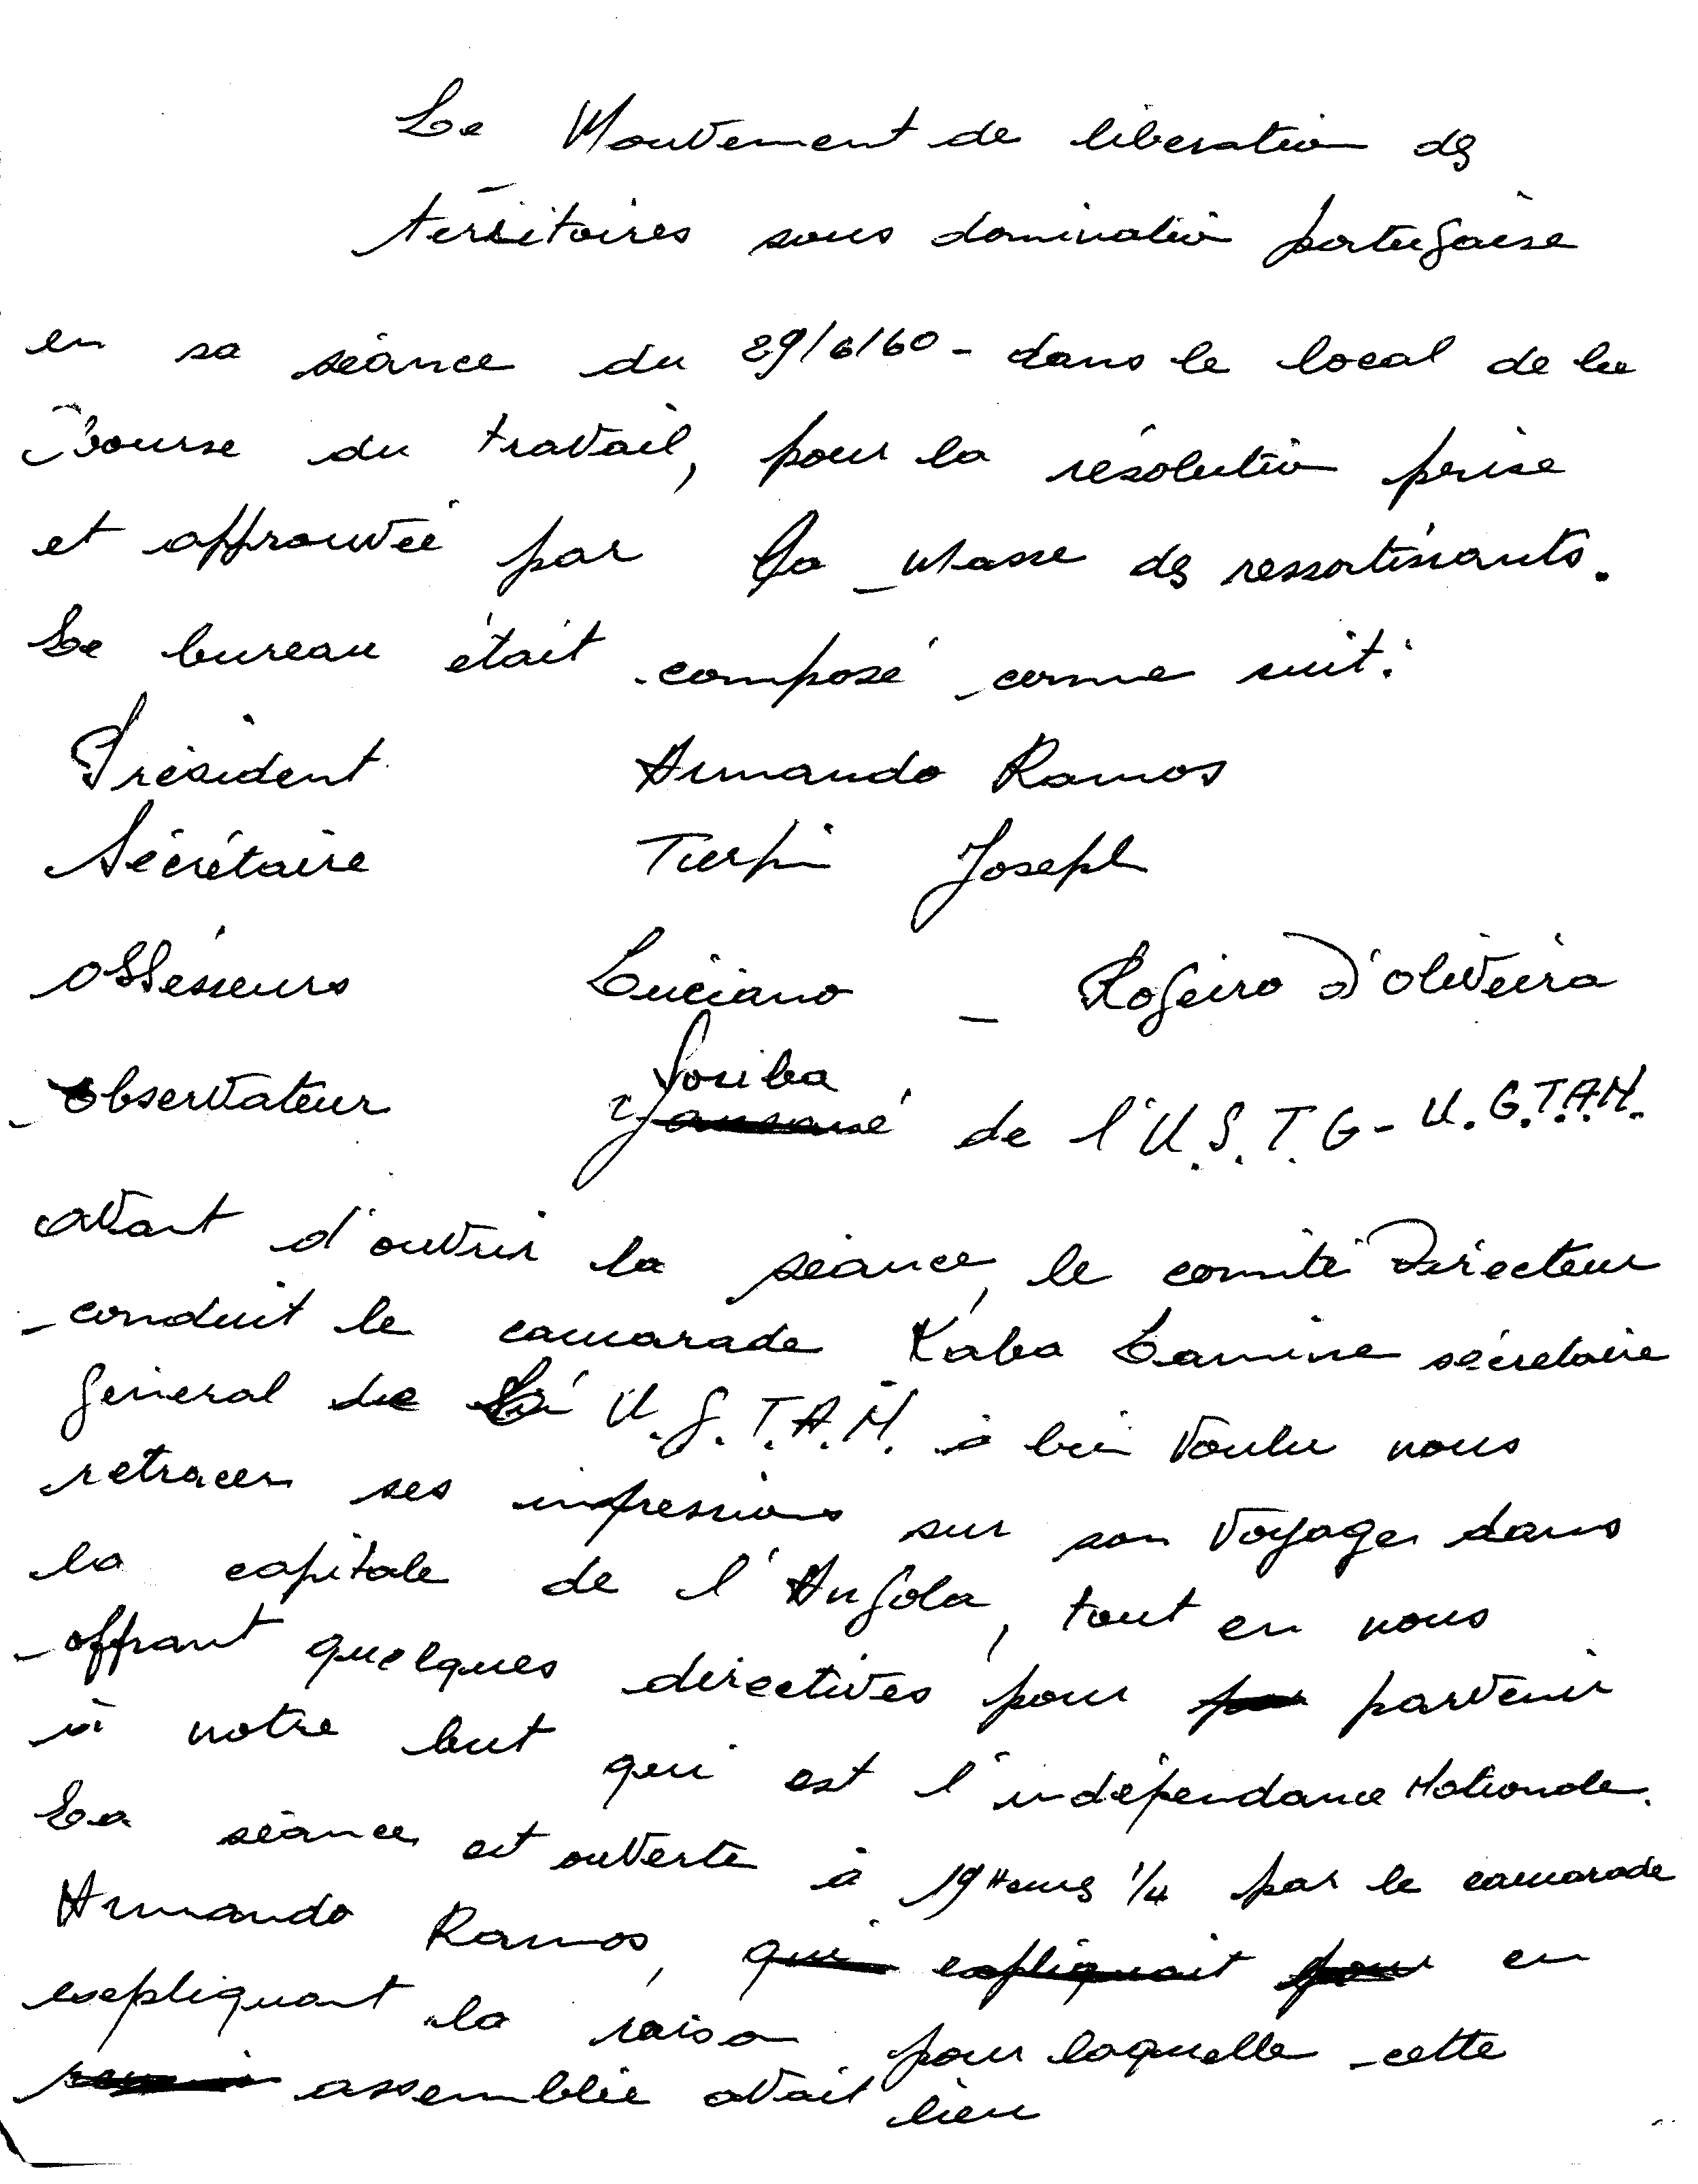 Le Mouvement de libération des
territoires sous domination portugaise
en sa séance du 29/6/60 - dans le local de la
Bourse du travail, pour la résolution prise
et approuvée par la Masse des ressortissants.
Le bureau était composé comme suit :
Président Armando Ramos
Sécrétaire Turpin Joseph
Assésseurs Luciano - Rogeiro D'Oliveira
Observateur Soriba de l'U.S.T.G - U.G.T.A.N.
avant d'ouvrir la séance, le comité Directeur
conduit le camarade Kaba Lamine sécretaire
général de L'U.G.T.A.N. a bien voulu nous
retracer ses impressions sur son voyage dans
la capitale de l'Angola, tout en nous
offrant quelques directives pour parvenir
à notre but qui est l'indépendance Nationale.
La séance est ouverte à 19 Heures 1/4 par le camarade
Armando Ramos, qui expliquait pour en
expliquant la raison pour laquelle cette
assemblée avait lieu